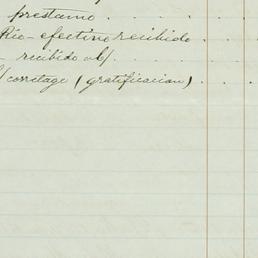 prestamo . . . . . .
Rio - efectivo recibido . . .
- recibido ab/ . . . .
/corritage (gratificacion) . . .